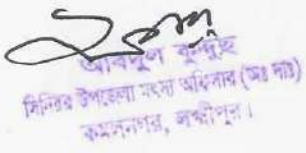 আবদুল কুদ্দুছ
সিনিয়র উপজেলা মৎস্য অফিসার (অঃ দাঃ)
কমলনগর, লক্ষ্মীপুর।